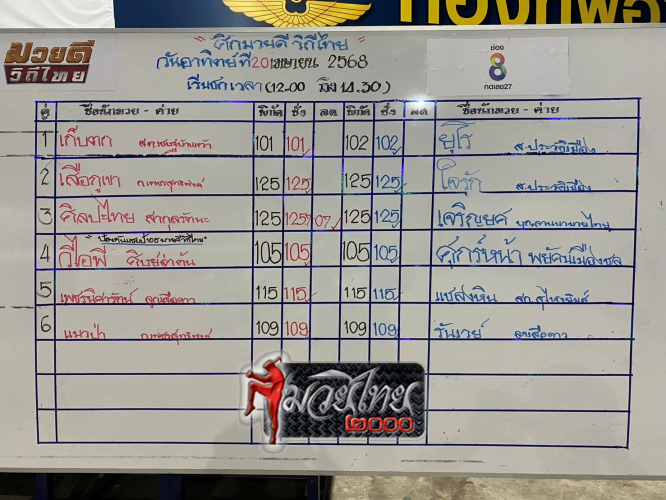 กองทัพอา
มวยดี
วิถีไทย
"ศึกมวยดี วิถีไทย"
วันอาทิตย์ที่ 20 เมษายน 2568
เริ่มชกเวลา (12.00 ถึง 14.30)
ช่อง
8
กดเลข27
คู่ ชื่อนักมวย - ค่าย พิกัด ชั่ง ลด พิกัด ชั่ง ลด ชื่อนักมวย - ค่าย
1 เก็บตก 101 101 102 102 ยูโร ส.ประวัติเมือง
2 เสือภูเขา 125 125 125 125 ใจรัก ส.ประวัติเมือง
3 ศิลปะไทย สากุลรัตนะ 125 125 125 125 เจริญยศ
4 วีไอพี 105 105 105 105 ศุกร์หน้า พยัคฆ์เมืองชล
5 ลูกเสือดาว 115 115 115 115 แซสงหิน
6 แมวป่า 109 109 109 109 รันเวย์ ลูกเสือดาว
มวยไทย
๒๐๐๐